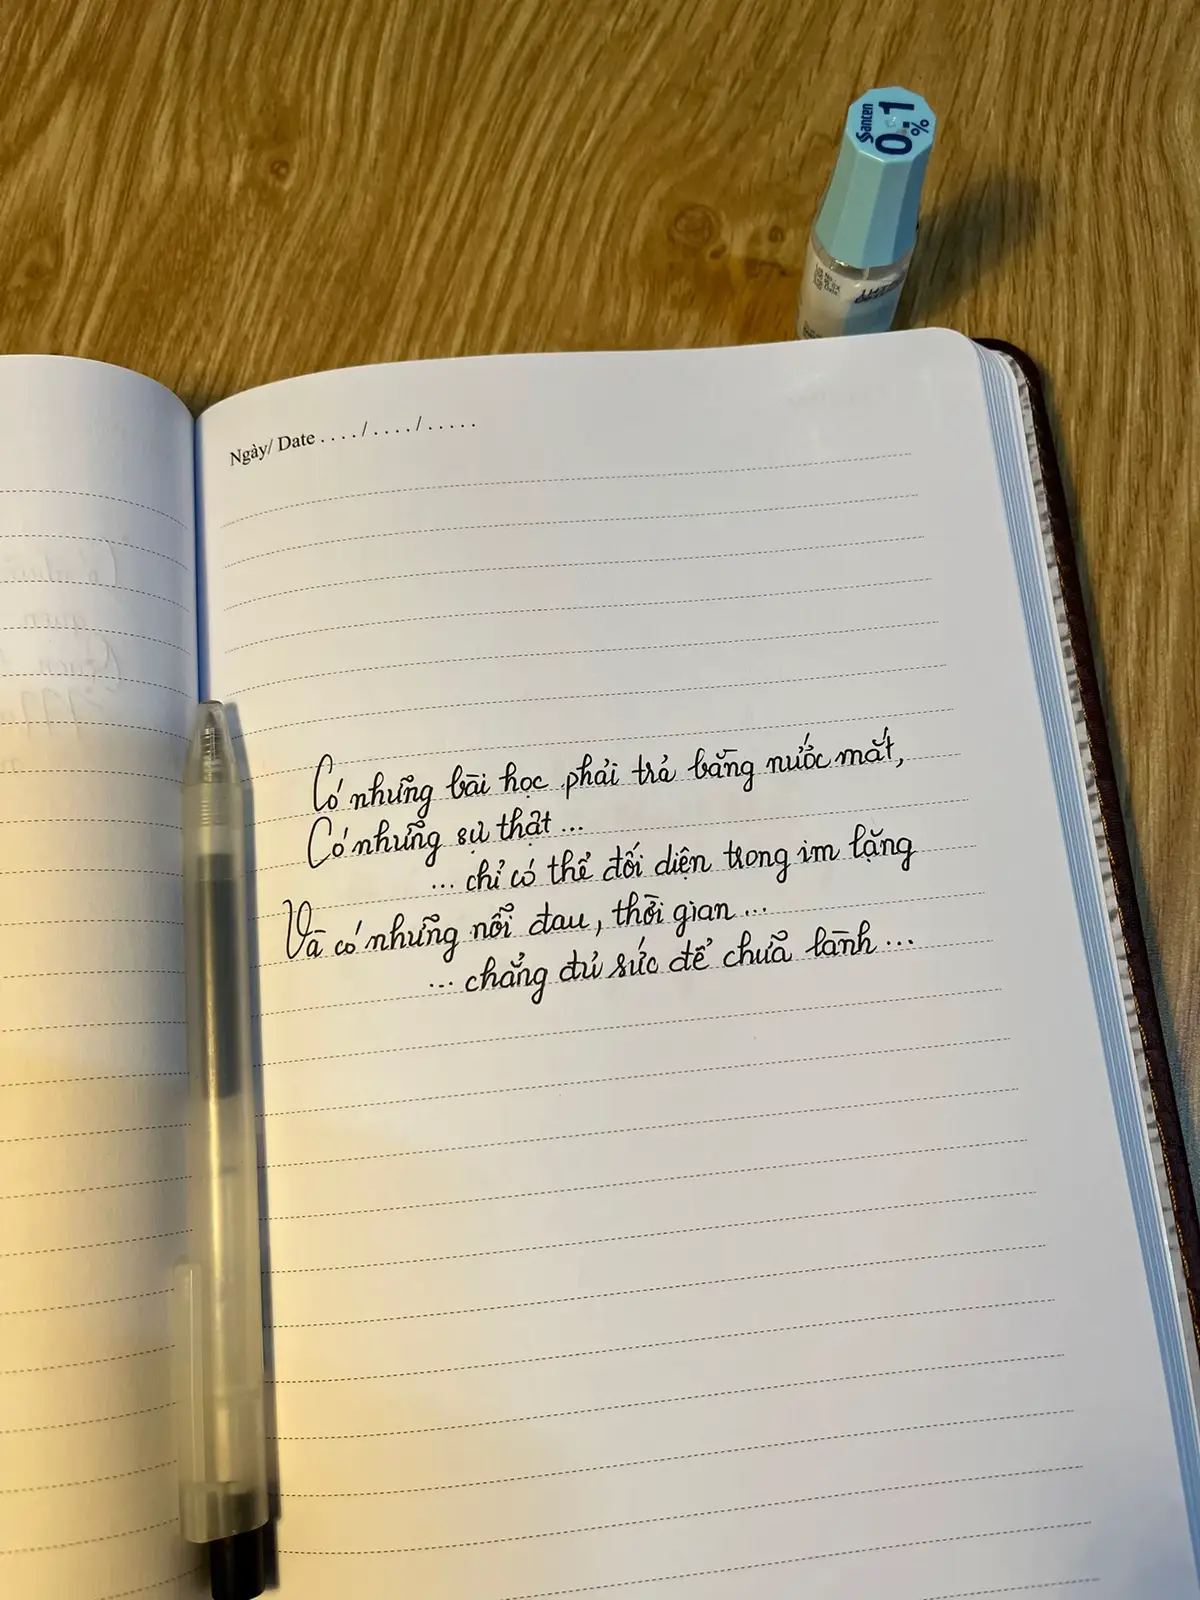 Santen
0.1
%
Ngày/ Date ..../..../.....
Có những bài học phải trả bằng nước mắt,
Có những sự thật ...
... chỉ có thể đối diện trong im lặng
Và có những nỗi đau, thời gian ...
... chẳng đủ sức để chữa lành ...